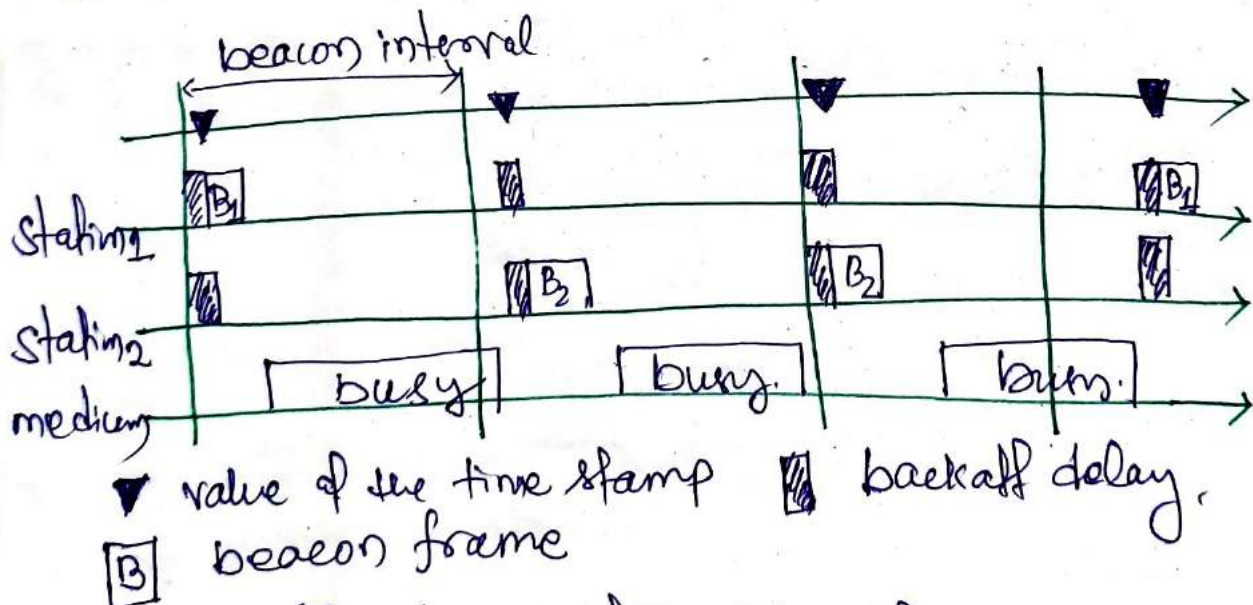 beacon interval
B1
station1
B2
B2
B1
station2
busy
busy.
busy.
medium
value of the time stamp
backoff delay.
B beacon frame